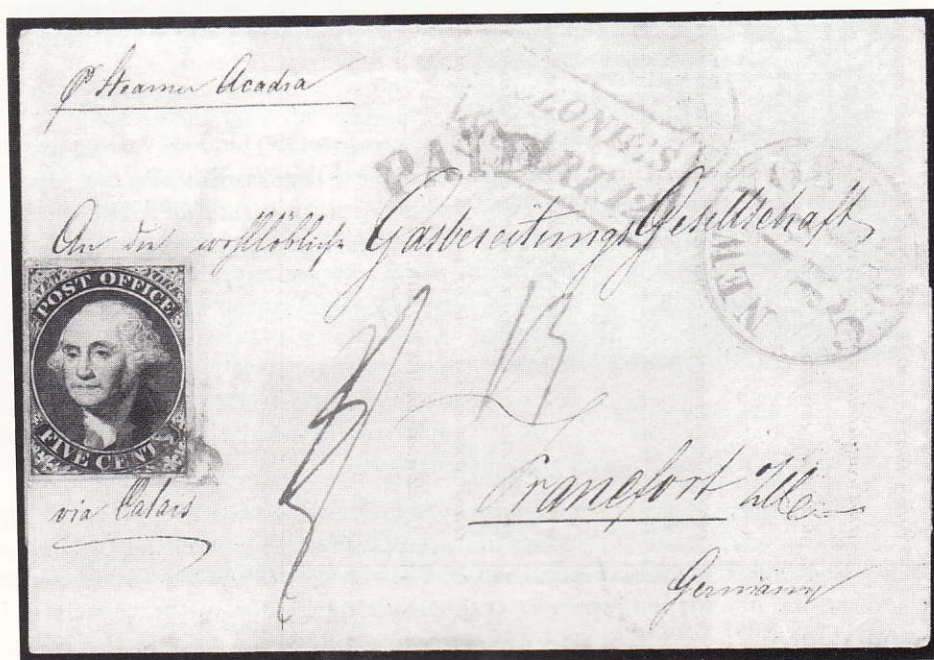 pr Steamer Acadia
LONIES
PAID
ART. 12
An die wohllöbliche Gasbereitungs Gesellschaft
NEW YORK
POST OFFICE
FIVE CENTS
13
via Calais
Francfort
Germany